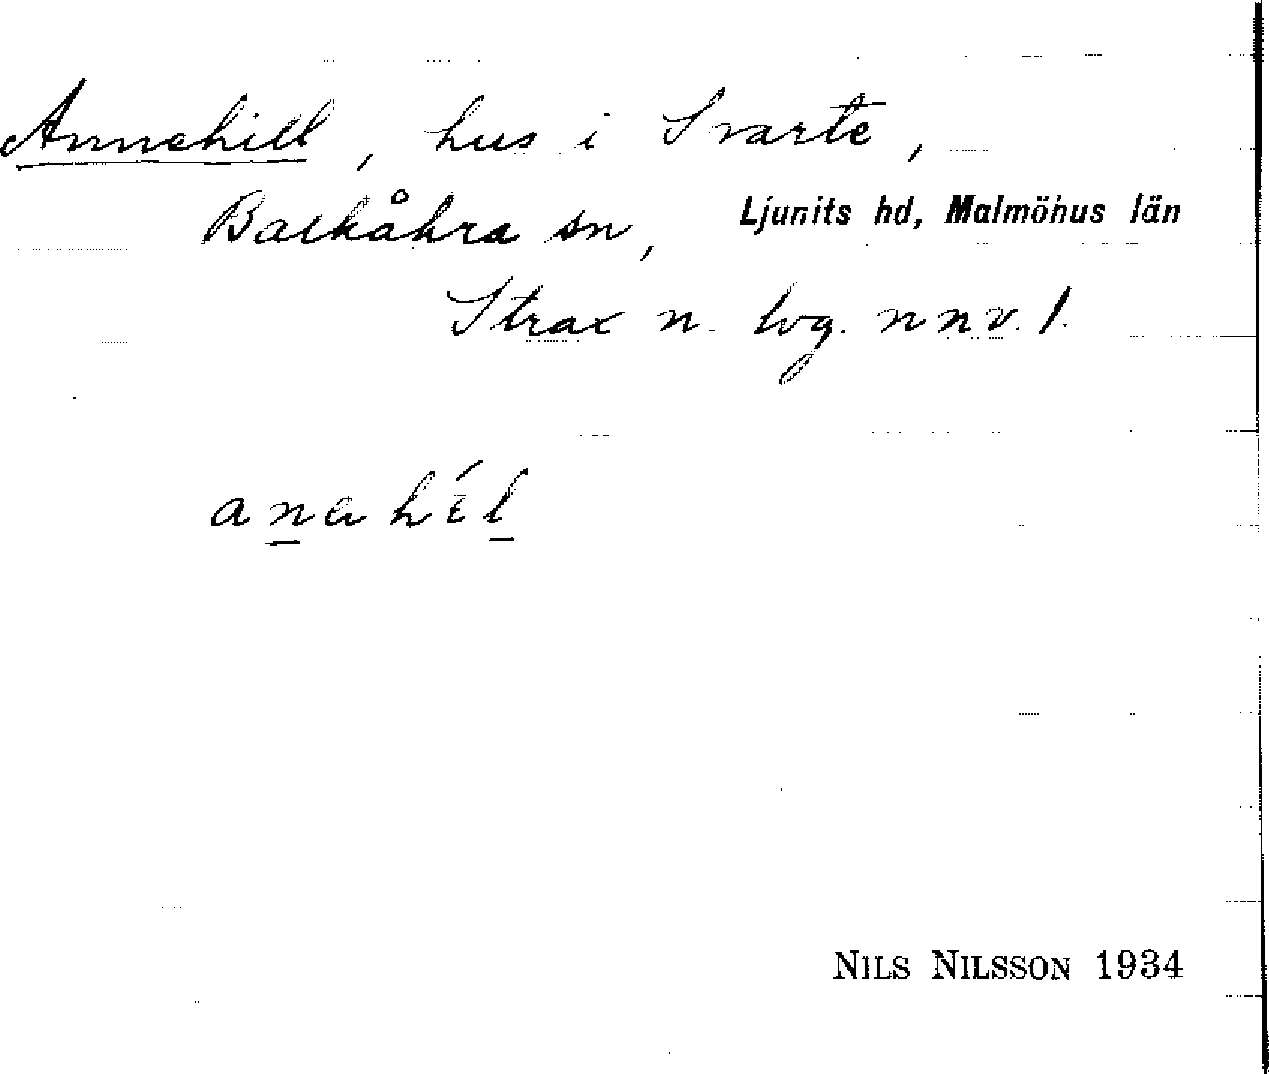 Annehill, hus i Svarte,
Balkåkra sn, Ljunits hd, Malmöhus län
Strax n. lvg. n n.v. 1.
anahél
NILS NILSSON 1934